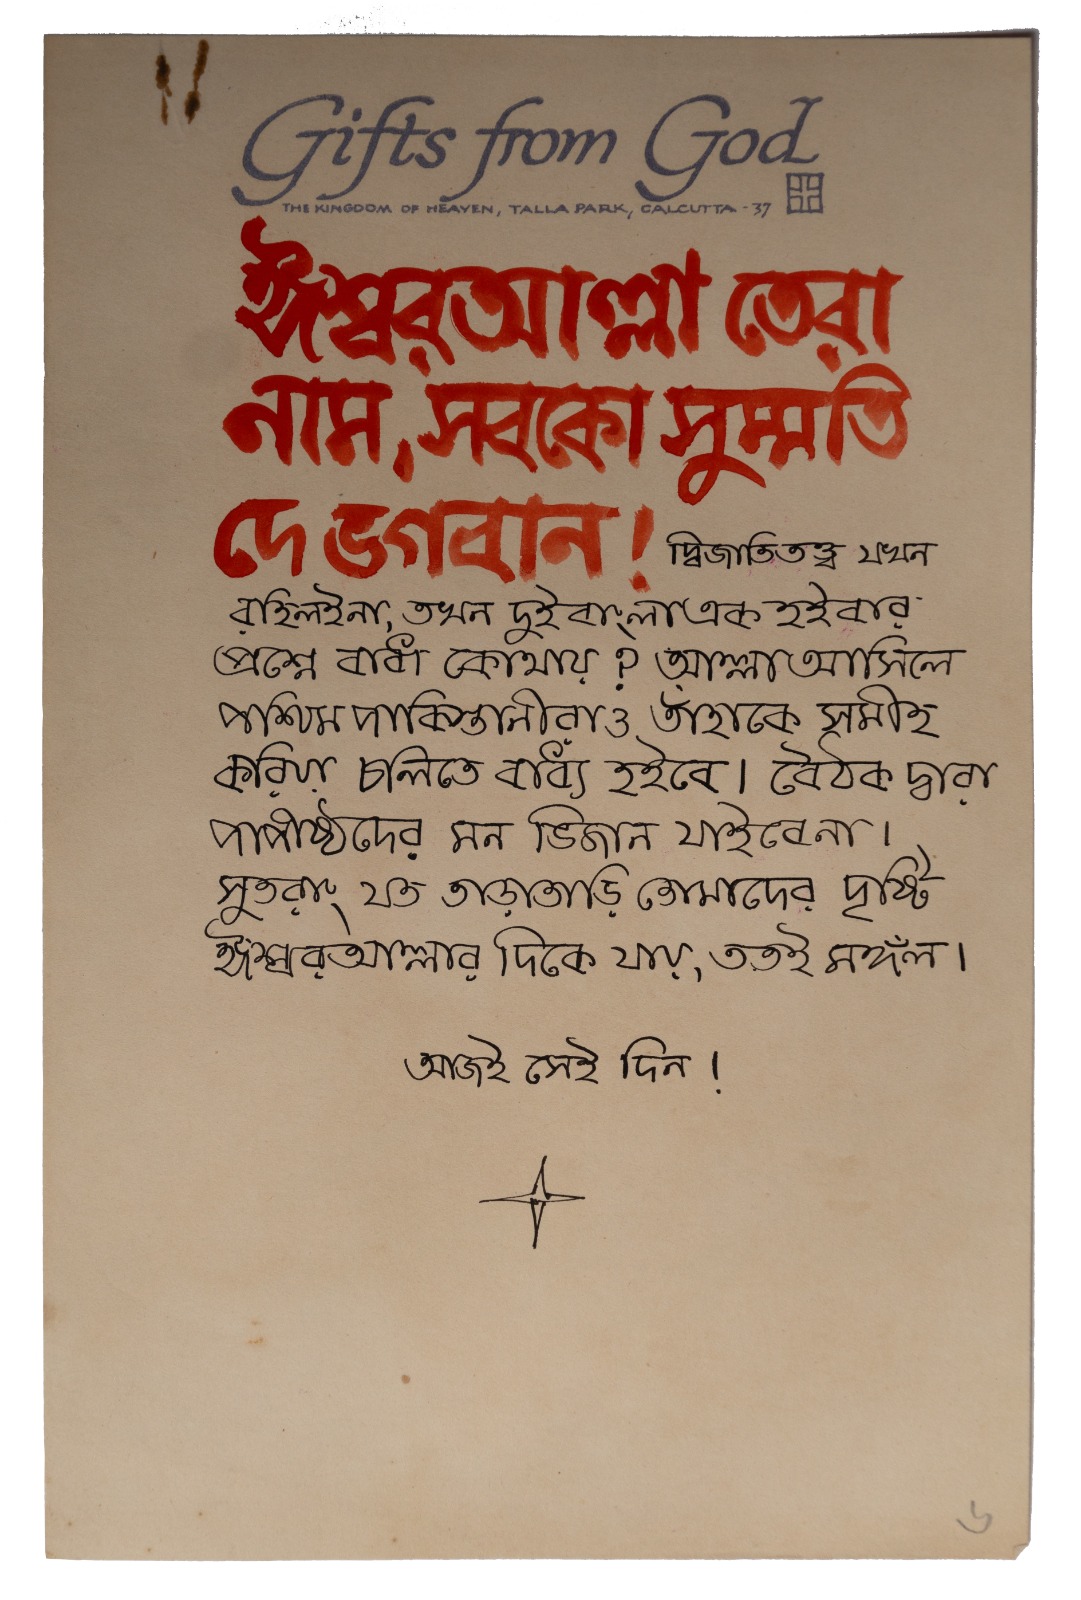 Gifts from God
THE KINGDOM OF HEAVEN, TALLA PARK, CALCUTTA - 37
ঈশ্বরআল্লা তেরা
নাম, সবকো সুম্মতি
দে ভগবান!
দ্বিজাতিতত্ত্ব যখন
রহিলইনা, তখন দুইবাংলাএক হইবার
প্রশ্নে বাধা কোথায়? আল্লাআসিলে
পশ্চিমপাকিস্তানীরাও তাঁহাকে সমীহ
করিয়া চলিতে বাধ্য হইবে। বৈঠক দ্বারা
পাপীষ্ঠদের মন ভিজান যাইবেনা।
সুতরাং যত তাড়াতাড়ি তোমাদের দৃষ্টি
ঈশ্বরআল্লার দিকে যায়, ততই মঙ্গল।
আজই সেই দিন!
৬